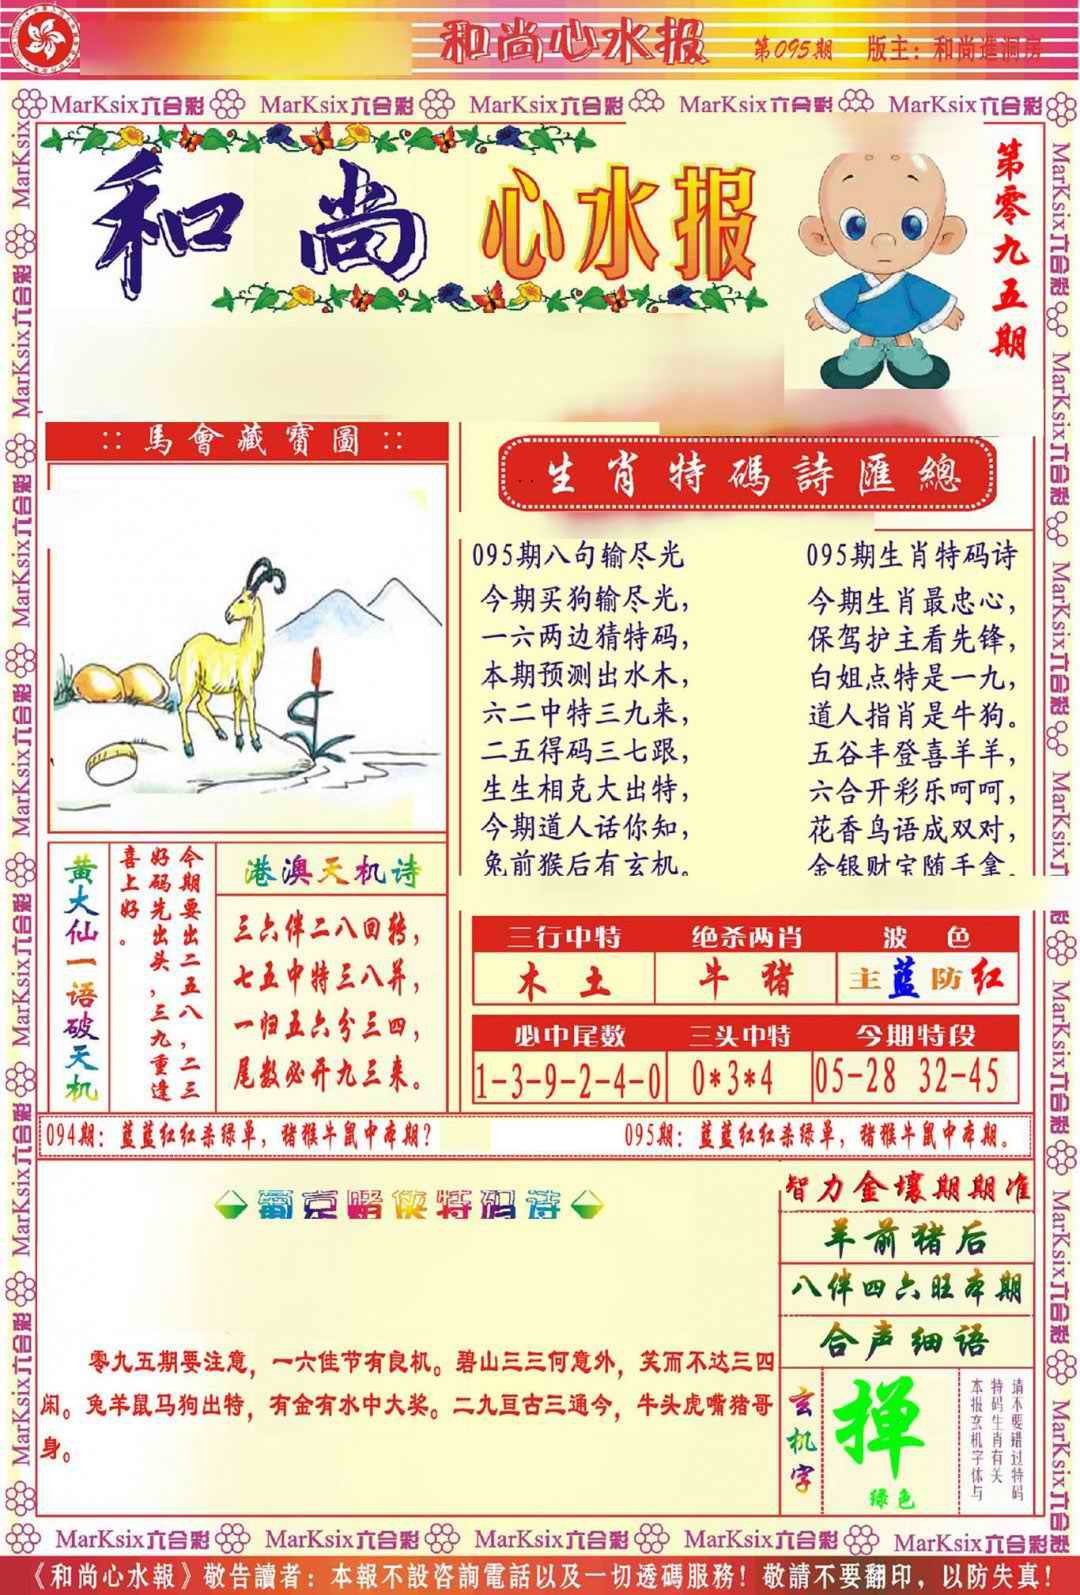 和尚心水报 第095期 版主：和尚進洞房
MarKsix六合彩 MarKsix六合彩 MarKsix六合彩 MarKsix六合彩 MarKsix六合彩
和尚心水报
第零九五期
:: 馬會藏寶圖 ::
生肖特碼詩匯總
095期八句输尽光
今期买狗输尽光，
一六两边猜特码，
本期预测出水木，
六二中特三九来，
二五得码三七跟，
生生相克大出特，
今期道人话你知，
兔前猴后有玄机。
095期生肖特码诗
今期生肖最忠心，
保驾护主看先锋，
白姐点特是一九，
道人指肖是牛狗。
五谷丰登喜羊羊，
六合开彩乐呵呵，
花香鸟语成双对，
金银财宝随手拿。
黄大仙一语破天机
今期要出二五八，二三
好码先出头，三九重逢
喜上好。
港澳天机诗
三六伴二八回转，
七五中特三八并，
一归五六分三四，
尾数必开九三来。
三行中特 绝杀两肖 波色
木土 牛猪 主蓝防红
必中尾数 三头中特 今期特段
1-3-9-2-4-0 0*3*4 05-28 32-45
094期：蓝蓝红红杀绿单，猪猴牛鼠中本期？
095期：蓝蓝红红杀绿单，猪猴牛鼠中本期。
葡京赌侠特码诗
零九五期要注意，一六佳节有良机。碧山三三何意外，笑而不达三四
闲。兔羊鼠马狗出特，有金有水中大奖。二九亘古三通今，牛头虎嘴猪哥
身。
智力金壤期期准
羊前猪后
八伴四六旺本期
合声细语
玄机字
掸
绿色
请不要错过特码
特码生肖有关
本报玄机字体与
MarKsix六合彩 MarKsix六合彩 MarKsix六合彩 MarKsix六合彩 MarKsix六合彩
《和尚心水報》敬告讀者：本報不設咨詢電話以及一切透碼服務！敬請不要翻印，以防失真！